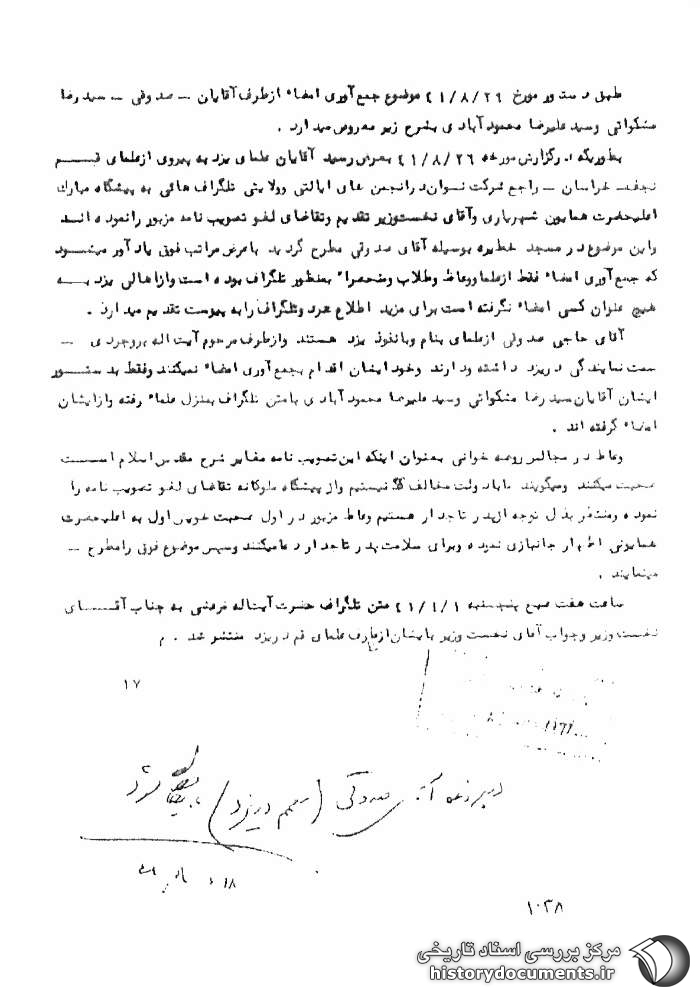 طبق دستور مورخ ۴۱/۸/۲۹ موضوع جمع آوری امضاء ازطرف آقایان – صدوقی – سید رضا
مشکواتی وسید علیرضا محمودآبادی بشرح زیر معروض میدارد .
بطوریکه در گزارش مورخه ۴۱/۸/۲۶ بعرض رسید آقایان علمای یزد به پیروی ازعلمای قم
نجف خراسان – راجع شرکت نسوان در انجمن های ایالتی وولایتی تلگراف هائی به پیشگاه مبارک
اعلیحضرت همایون شهریاری وآقای نخست وزیر تقدیم وتقاضای لغو تصویب نامه مزبور رانموده اند
واین موضوع در مسجد حظیره بوسیله آقای صدوقی مطرح گردید باعرض مراتب فوق یادآور میشود
که جمع آوری امضاء فقط ازعلما ووعاظ وطلاب ومنحصراً بمنظور تلگراف بوده است وازاهالی یزد به
هیچ عنوان کسی امضاء نگرفته است برای مزید اطلاع تلگراف رابه پیوست تقدیم میدارد .
آقای حاجی صدوقی ازعلمای بنام وبانفوذ یزد هستند وازطرف مرحوم آیت اله بروجردی –
سمت نمایندگی در یزد داشته ودارند وخود ایشان اقدام بجمع آوری امضاء نمیکنند وفقط بدستور
ایشان آقایان سید رضا مشکواتی وسید علیرضا محمودآبادی بامتن تلگراف بمنزل علماء رفته وازایشان
امضاء گرفته اند .
وعاظ در مجالس روضه خوانی بعنوان اینکه این تصویب نامه مغایر شرع مقدس اسلام است
صحبت میکنند ومیگویند مابادولت مخالف نیستیم واز پیشگاه ملوکانه تقاضای لغو تصویب نامه را
نموده ومنتظر بذل توجه پدر تاجدار هستیم وعاظ مزبور در اول صحبت خویش اول به اعلیحضرت
همایونی اظهار جانبازی نموده وبرای سلامت پدر تاجدار دعا میکنند وسپس موضوع فوق رامطرح –
مینمایند .
ساعت هفت صبح پنجشنبه متن تلگراف حضرت آیت اله به جناب آقای
نخست وزیر وجواب آقای نخست وزیر بایشان ازطرف علمای قم در یزد منتشر شد . م
۱۷
در پرونده آقای صدوقی (مقیم در یزد) بایگانی شود
۱۸
۱۰۳۸
مرکز بررسی اسناد تاریخی
historydocuments.ir